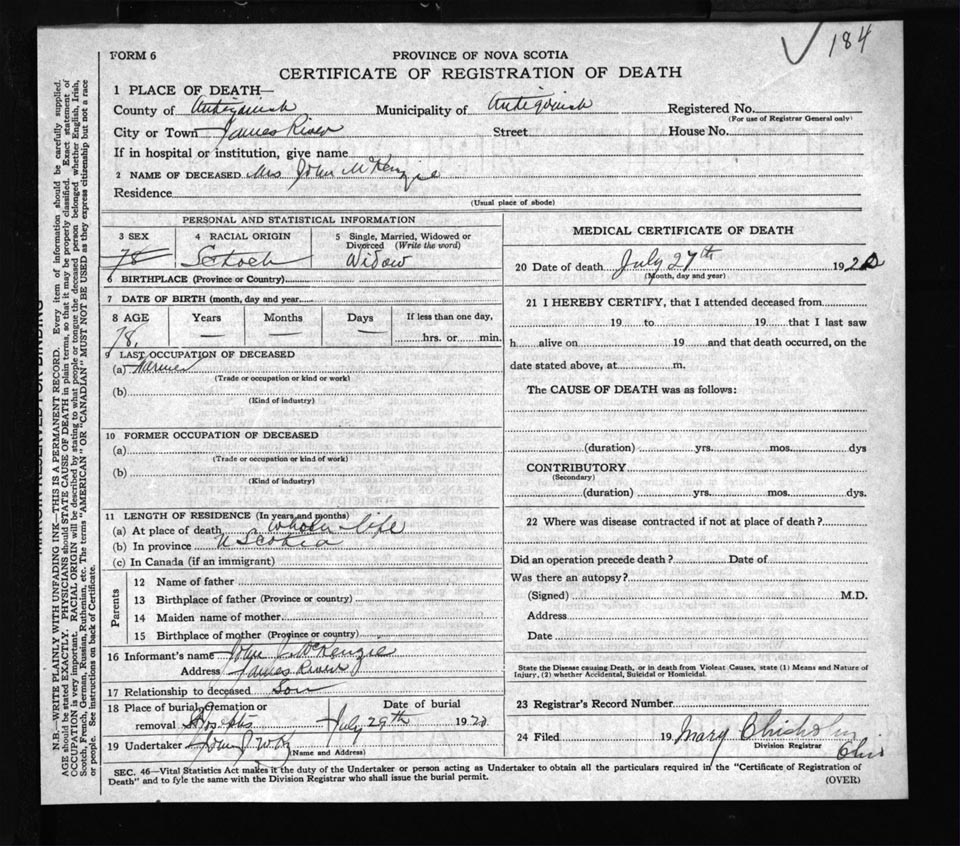 184
FORM 6
PROVINCE OF NOVA SCOTIA
CERTIFICATE OF REGISTRATION OF DEATH
1 PLACE OF DEATH—
County of Antigonish Municipality of Antigonish Registered No.
(For use of Registrar General only)
City or Town James River Street House No.
If in hospital or institution, give name
2 NAME OF DECEASED Mrs John McKenzie
Residence
(Usual place of abode)
PERSONAL AND STATISTICAL INFORMATION
3 SEX 4 RACIAL ORIGIN 5 Single, Married, Widowed or
Divorced (Write the word)
78 Scotch Widow
6 BIRTHPLACE (Province or Country)
7 DATE OF BIRTH (month, day and year
8 AGE Years Months Days If less than one day,
78 — — — hrs. or min.
9 LAST OCCUPATION OF DECEASED
(a) Farmer
(Trade or occupation or kind or work)
(b)
(Kind of industry)
10 FORMER OCCUPATION OF DECEASED
(a)
(Trade or occupation or kind of work)
(b)
(Kind of industry)
11 LENGTH OF RESIDENCE (In years and months)
(a) At place of death life
(b) In province N Scotia
(c) In Canada (if an immigrant)
Parents
12 Name of father
13 Birthplace of father (Province or country)
14 Maiden name of mother
15 Birthplace of mother (Province or country)
16 Informant's name John McKenzie
Address James River
17 Relationship to deceased Son
18 Place of burial, cremation or Date of burial
removal July 29th 1920
19 Undertaker John J
(Name and Address)
MEDICAL CERTIFICATE OF DEATH
20 Date of death July 27th 1920
(Month, day and year)
21 I HEREBY CERTIFY, that I attended deceased from
19 to 19 that I last saw
h alive on 19 and that death occurred, on the
date stated above, at m.
The CAUSE OF DEATH was as follows:
(duration) yrs. mos. dys
CONTRIBUTORY
(Secondary)
(duration) yrs. mos. dys.
22 Where was disease contracted if not at place of death?
Did an operation precede death? Date of
Was there an autopsy?
(Signed) M.D.
Address
Date
State the Disease causing Death, or in death from Violent Causes, state (1) Means and Nature of
Injury, (2) whether Accidental, Suicidal or Homicidal.
23 Registrar's Record Number
24 Filed 19 Mary Chisholm
Division Registrar
SEC. 46—Vital Statistics Act makes it the duty of the Undertaker or person acting as Undertaker to obtain all the particulars required in the "Certificate of Registration of
Death" and to fyle the same with the Division Registrar who shall issue the burial permit.
(OVER)
N.B.—WRITE PLAINLY WITH UNFADING INK—THIS IS A PERMANENT RECORD. Every item of information should be carefully supplied.
AGE should be stated EXACTLY. PHYSICIANS should STATE CAUSE OF DEATH in plain terms, so that it may be properly classified. Exact statement of
OCCUPATION is very important. RACIAL ORIGIN will be described by stating to what people or tongue the deceased person belonged whether English, Irish,
Scotch, French, German, Russian, Ruthenian, etc. The terms "AMERICAN" OR "CANADIAN" MUST NOT BE USED as they express citizenship but not a race
or people. See instructions on back of Certificate.